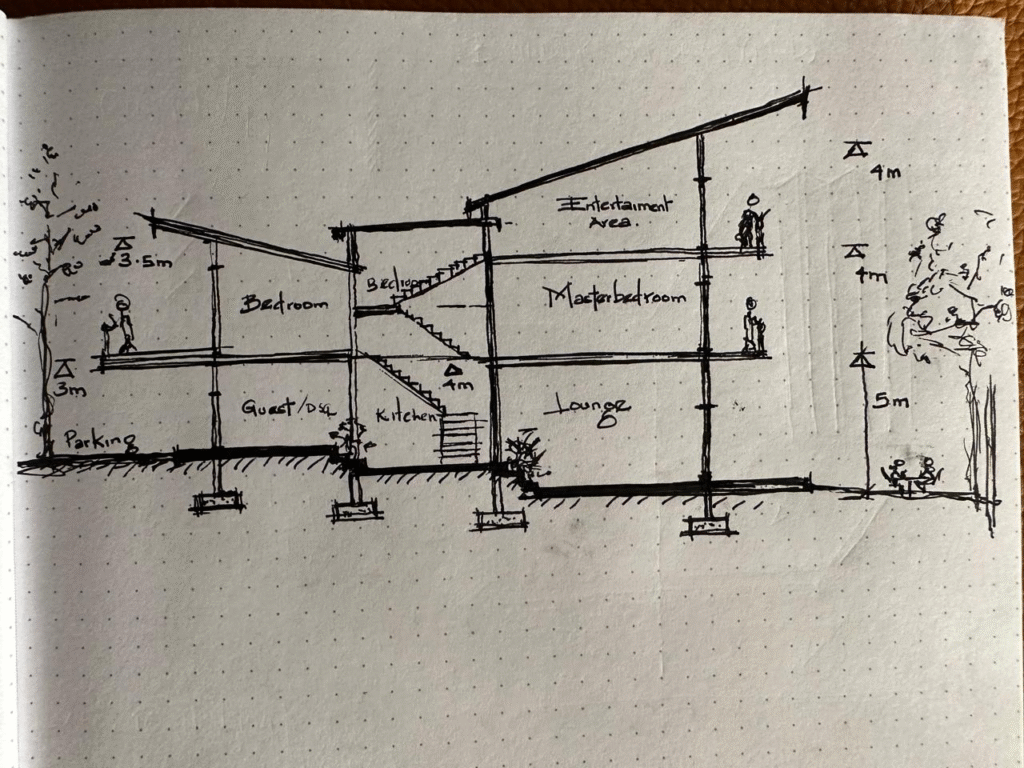 Entertaiment
Area.
4m
3.5m
4m
Bedroom
Bedroom
Masterbedroom
3m
4m
Guest/DSQ
Kitchen
Lounge
5m
Parking